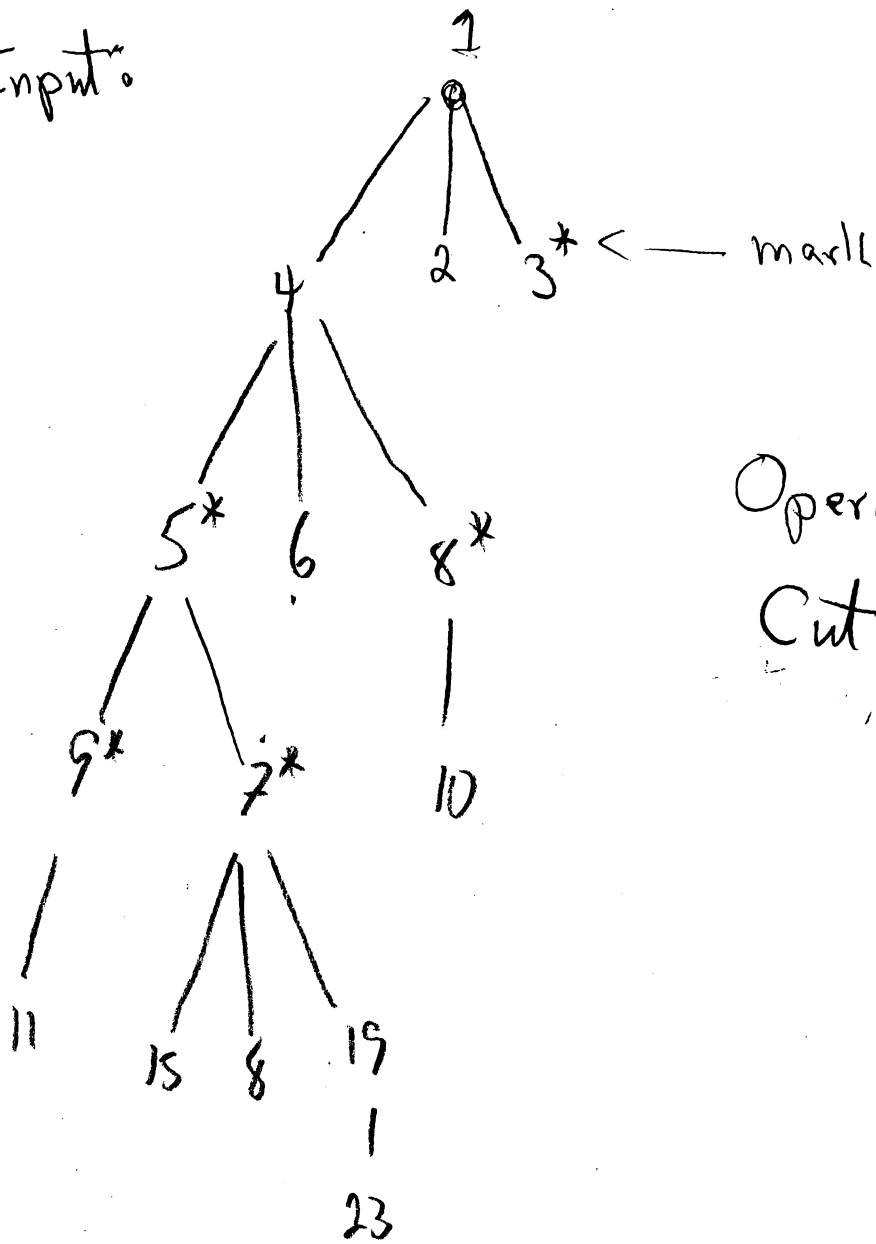 1
Input:
4 2 3* < — mark
5* 6 8*
Oper
Cut
9* 7* 10
11 15 8 19
23